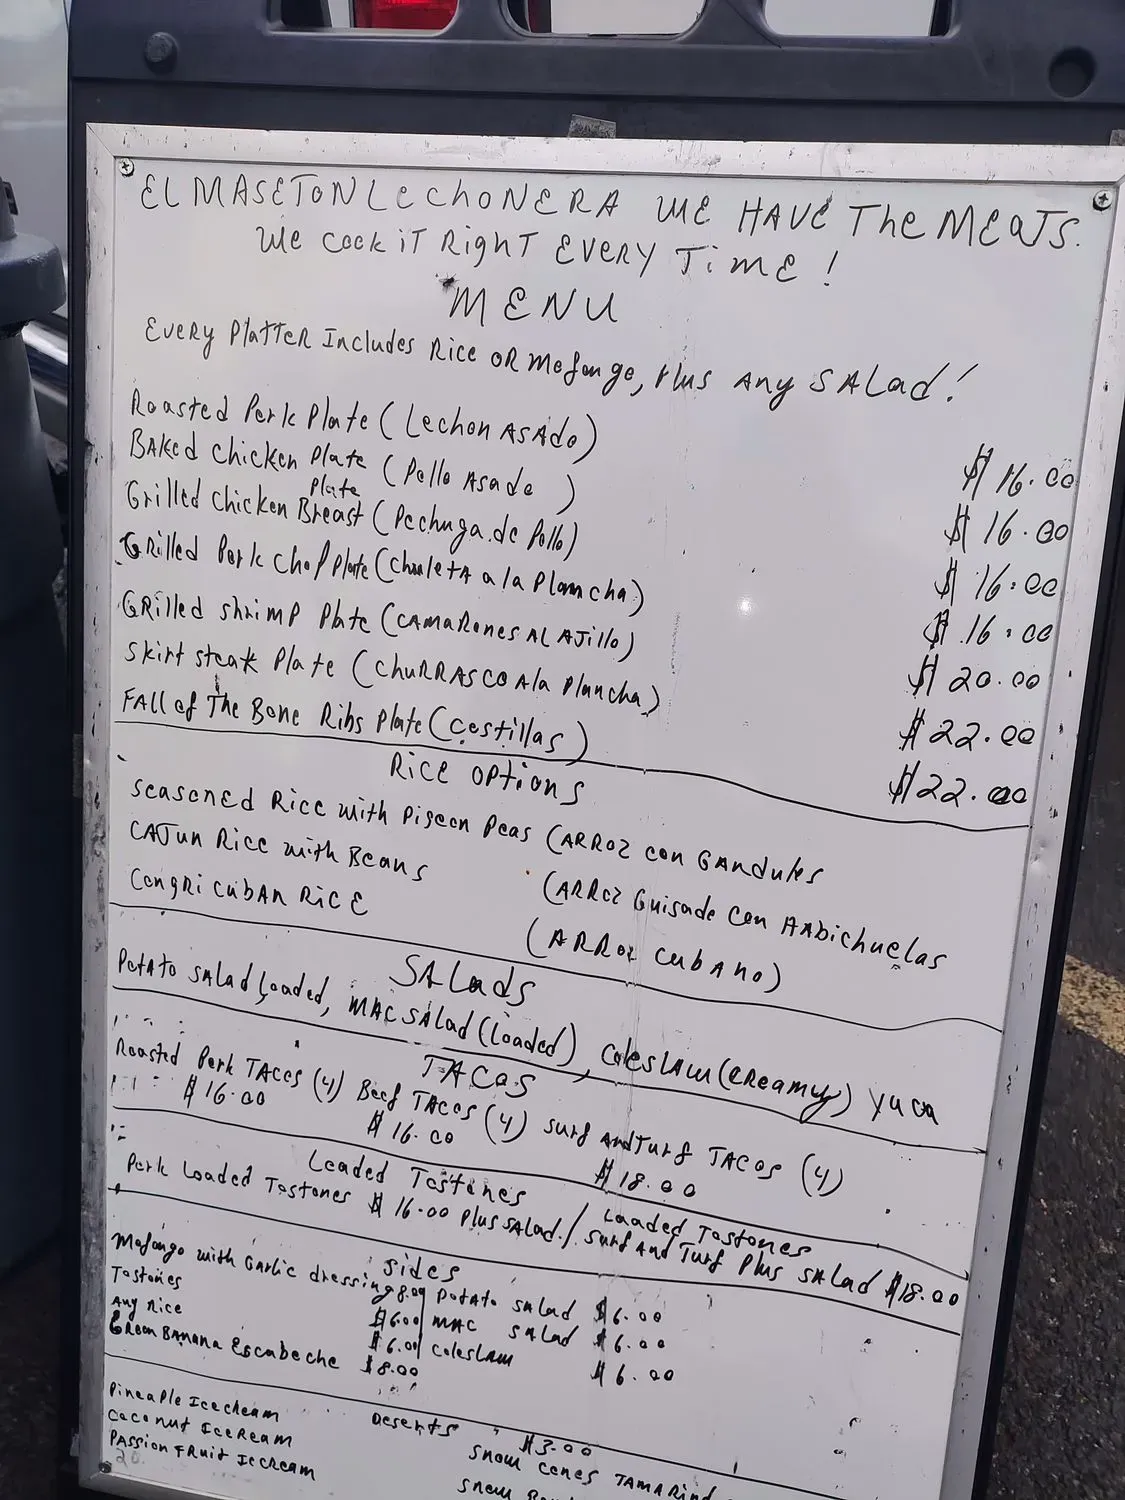 EL MASETON LECHONERA WE HAVE THE MEATS.
WE COOK IT RIGHT EVERY TIME!
MENU
EVERY PLATTER INCLUDES RICE OR MOFONGO, PLUS ANY SALAD!
Roasted Pork Plate (Lechon Asado) $16.00
BAKED CHICKEN Plate (Pollo Asado) $16.00
Grilled Chicken Breast Plate (Pechuga de Pollo) $16.00
GRilled Pork Chop Plate (Chuleta a la Plancha) $16.00
GRilled Shrimp Plate (CAMARONES AL AJillo) $20.00
Skirt Steak Plate (CHURRASCO A la Plancha) $22.00
FAll of The Bone Ribs Plate (Costillas) $22.00
RICE OPTIONS
SEASONED Rice with Pigeon Peas (ARROZ con GANDULES
CAJUN RICE with Beans (ARROZ Guisado Con HABICHUELAS
Congri CUBAN RICE (ARROZ CUBANO)
SALADS
POTATO SALAD Loaded, MAC SALAD (loaded), Coleslaw (CREAMY) YUCA
TACOS
Roasted Pork TACOS (4) Beef TACOS (4) Surf and Turf TACOS (4)
$16.00 $16.00 $18.00
Loaded Tostones Loaded Tostones
Pork Loaded Tostones $16.00 Plus SALAD / Surf And Turf Plus SALAD $18.00
Sides
Mofongo with Garlic dressing 8.00 Potato SALAD $6.00
Tostones $6.00 MAC SALAD $6.00
Any Rice $6.00 Coleslaw $6.00
GREEN BANANA Escabeche $8.00
Deserts $3.00
Pineapple Icecream Snow Cones TAMARIND
Coconut IceReam Snow
PASSION FRUIT Icecream